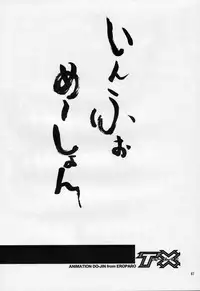 いんふぉ
めーしょん
ANIMATION DO-JIN from EROPARO
TX